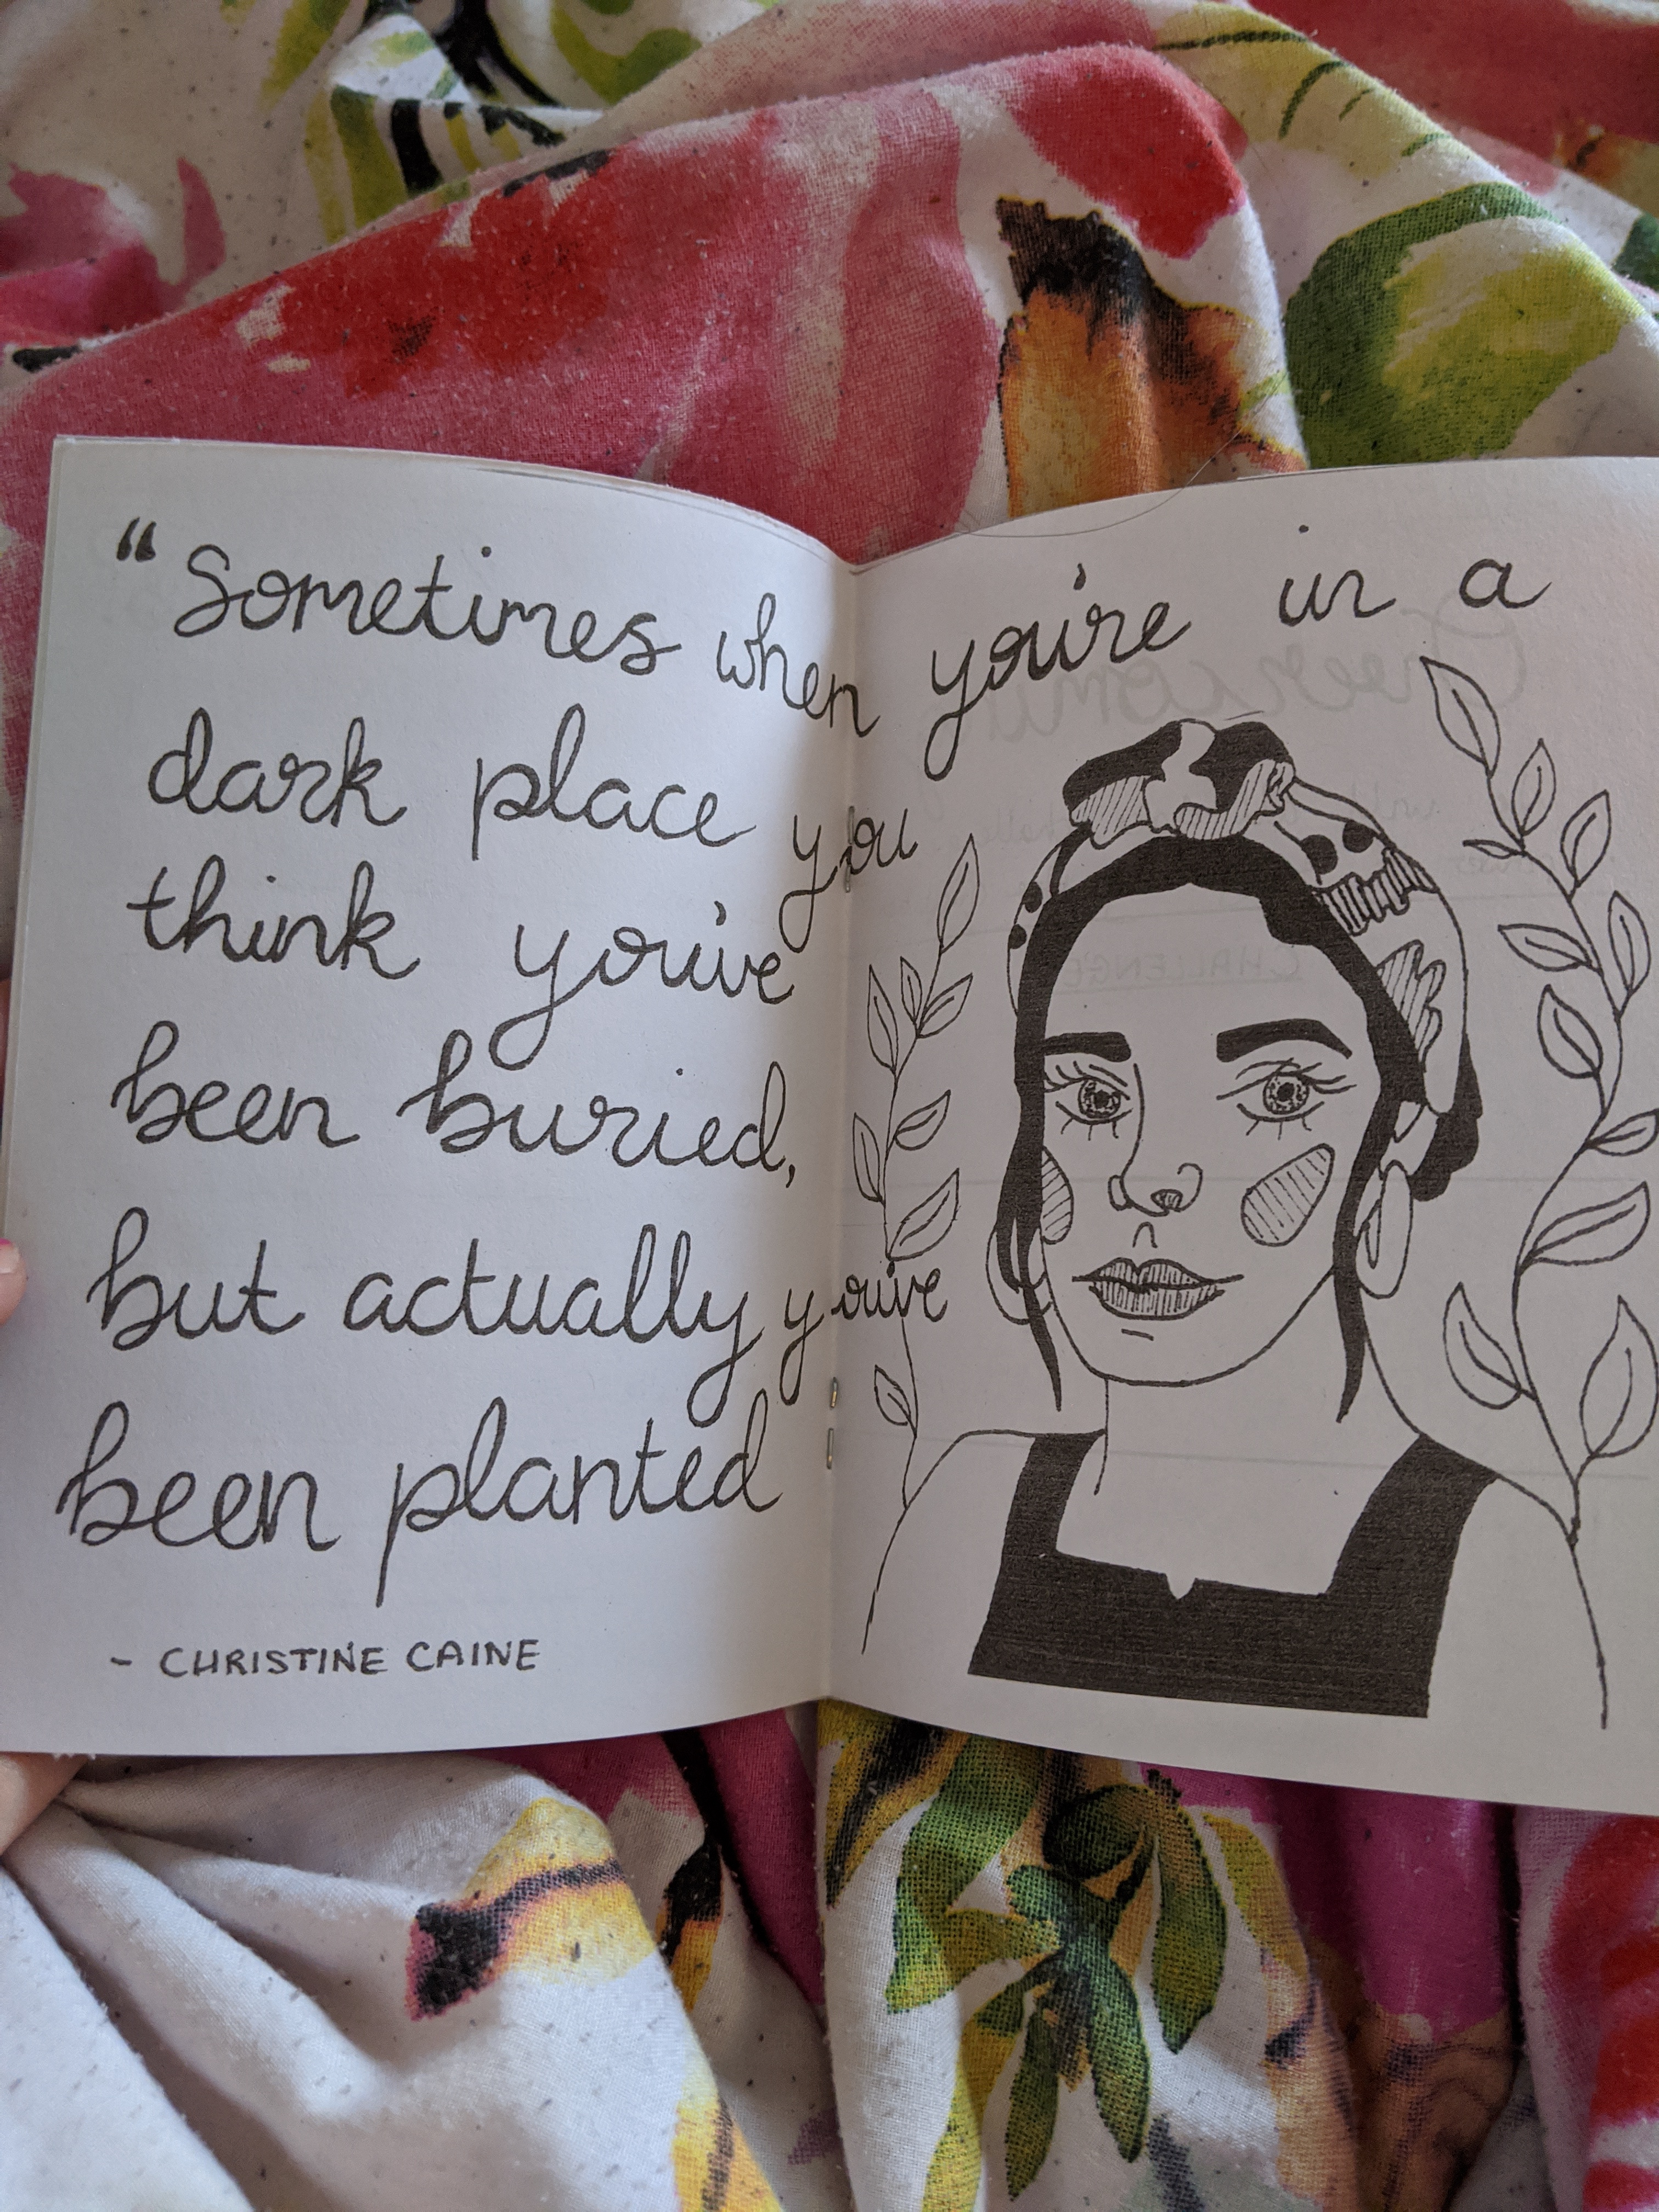 “Sometimes when you're in a
dark place you
think you've
been buried,
but actually you've
been planted
- CHRISTINE CAINE
CHALLENGE